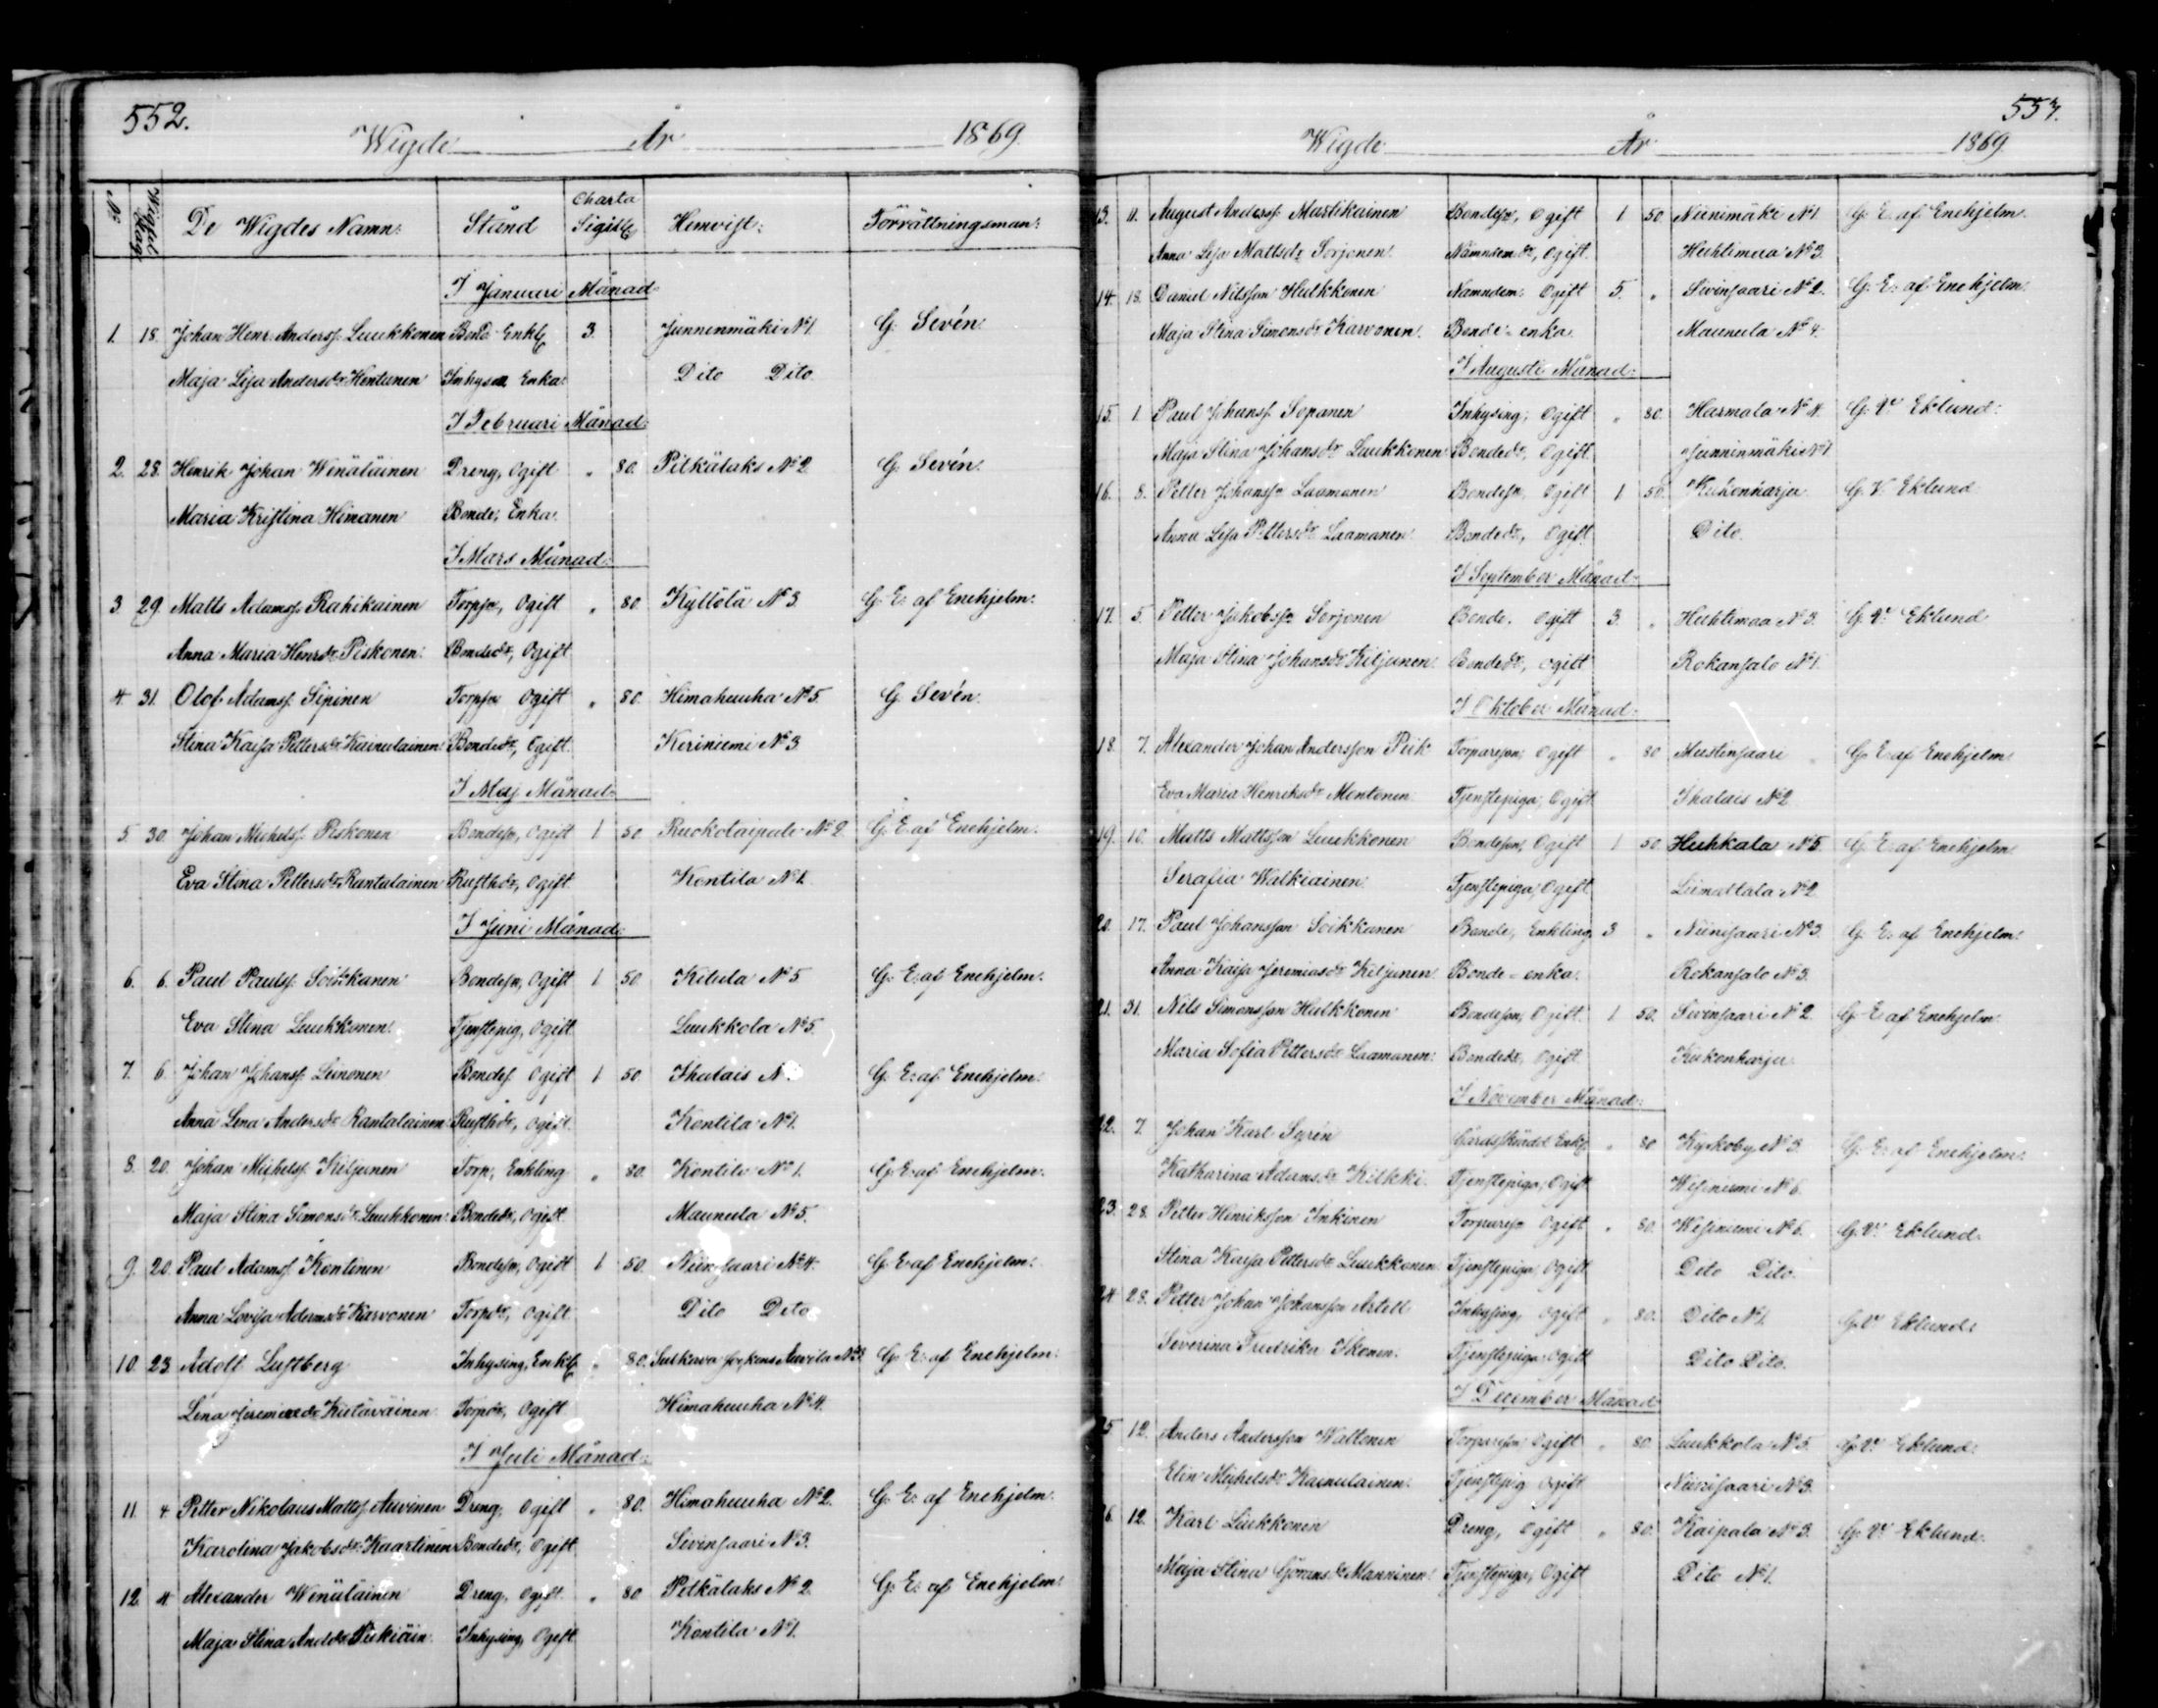 552.
Wigde År 1869.
No Wigsel dag De Wigdes Namn: Stånd Charta Sigill: Hemvist: Förrättningsman:
I Januari Månad:
1. 18. Johan Henr. Anderss. Luukkonen Bond. Enkl. 3. Junninmäki No 1. G. Sevén.
Maja Lisa Andersdr Hentunen Inhyses Enka Dito Dito.
I Februari Månad:
2. 28. Henrik Johan Wenäläinen Dreng, Ogift " 80. Pitkälaks No 2 G. Sevén.
Maria Kristina Himanen Bonde, Enka.
I Mars Månad:
3. 29. Matts Adamss. Rahikainen Torpsn, Ogift " 80. Kyllölä No 3. G. E. af Enehjelm.
Anna Maria Henrdr Piskonen. Bondedr, Ogift
4. 31. Olof Adamss. Sipinen Torpsn Ogift " 80. Himahuuha No 5. G. Sevén.
Stina Kaisa Pettersdr Kainulainen. Bondedr, Ogift. Keriniemi No 3
I Maj Månad:
5. 30. Johan Michelss. Piskonen Bondesn, Ogift 1 50 Ruokolaipale No 2 G. E. af Enehjelm.
Eva Stina Pettersdr Rantalainen Rusthdr, Ogift. Kontila No 1.
I Juni Månad:
6. 6. Paul Paulss. Soikkanen Bondesn, Ogift 1 50. Kilula No 5 G. E. af Enehjelm.
Eva Stina Luukkonen. Tjenstepig, Ogift. Luukkola No 5.
7. 6. Johan Johanss. Leinonen Bondes. Ogift 1 50. Ihalais N G. E. af Enehjelm.
Anna Lena Andersdr Rantalainen Rusthdr, Ogift. Kontila No 1.
8. 20. Johan Michelss. Kiljunen Torp, Enkling " 80. Kontila No 1. G. E. af Enehjelm.
Maja Stina Simonsdr Luukkonen. Bondedr, Ogift. Maunula No 5.
9. 20. Paul Adamss. Kontinen Bondesn, Ogift 1 50. Niinisaari No 4. G. E. af Enehjelm.
Anna Lovisa Adamsdr Karvonen Torpdr, Ogift Dito Dito
10. 23. Adolf Luftberg Inhysing, Enkl. " 80. Sulkava Auvila No 3. G. E. af Enehjelm.
Lena Kietäväinen Torpdr, Ogift Himahuuha No 4.
I Juli Månad:
11. 4. Petter Nikolaus Mattss. Auvinen Dreng, Ogift " 80. Himahuuha No 2. G. E. af Enehjelm.
Karolina Jakobsdr Kaartinen Bondedr, Ogift Sivinsaari No 3.
12. 4 Alexander Wenäläinen Dreng, Ogift. " 80 Pitkälaks No 2. G. E. af Enehjelm.
Maja Stina Inhysing, Ogift Kontila No 1.
553.
Wigde År 1869
13. 11. August Anderss. Martikainen Bondesn, Ogift 1 50 Niinimäki No 1. G. E. af Enehjelm.
Anna Lisa Mattsdr Sorjonen. Nämndemdr, Ogift. Huhtimaa No 3.
14. 18. Daniel Nilsson Hulkkonen Nämndem. Ogift 5. " Sivinsaari No 2. G. E. af Enehjelm.
Maja Stina Simonsdr Karvonen. Bonde-enka. Maunula No 4.
I Augusti Månad:
15. 1. Paul Johanss. Sopanen Inhysing, Ogift " 80. Härmälä No 4. G. W. Eklund.
Maja Stina Johansdr Luukkonen Bondedr, Ogift. Junninmäki No 1
16. 8. Petter Johanssn Laamanen Bondesn, Ogift 1 50. Kukonharju G. W. Eklund
Anna Lisa Pettersdr Laamanen. Bondedr, Ogift. Dito.
I September Månad:
17. 5. Petter Jakobssn Sorjonen Bonde. Ogift 3. " Huhtimaa No 3. G. W. Eklund
Maja Stina Johansdr Kiljunen. Bondedr, Ogift Rokansalo No 1.
I Oktober Månad:
18. 7. Alexander Johan Andersson Piik Torpareson, Ogift " 80 Mustinsaari " G. E. af Enehjelm.
Eva Maria Henriksdr Montonen Tjenstepiga, Ogift. Ihalais No 2
19. 10. Matts Mattsson Luukkonen Bondeson, Ogift 1 50. Huhkala No 5 G. E. af Enehjelm
Serafia Walkiainen. Tjenstepiga, Ogift. Liimattala No 2
20. 17. Paul Johansson Soikkanen Bonde, Enkling 3 " Niinisaari No 3. G. E. af Enehjelm.
Anna Kaisa Jeremiasdr Kiljunen Bonde-enka. Rokansalo No 3.
21. 31. Nils Simonsson Hulkkonen Bondeson, Ogift. 1. 50. Sivinsaari No 2. G. E. af Enehjelm.
Maria Sofia Pettersdr Laamanen. Bondedr, Ogift Kukonharju.
I November Månad:
22. 7. Johan Karl Syrén Enkl. " 80 Kyrkoby No 3. G. E. af Enehjelm.
Katharina Adamsdr Kilkki. Tjenstepiga, Ogift Wesiniemi No 6.
23. 28. Petter Henriksson Inkinen Torparesn Ogift " 80. Wesiniemi No 6. G. W. Eklund.
Stina Kaisa Pettersdr Luukkonen Tjenstepiga, Ogift Dito Dito.
24. 28. Petter Johan Johansson Artell Inhysing, Ogift " 80. Dito No 1. G. W. Eklund.
Severina Fredrika Ikonen. Tjenstepiga, Ogift Dito Dito.
I December Månad
25 12. Anders Andersson Waltonen Torpareson, Ogift " 80. Luukkola No 5. G. W. Eklund.
Elin Michelsdr Kainulainen. Tjenstepig Ogift Niinisaari No 3.
26. 12. Karl Liukkonen Dreng, Ogift " 80. Kaipala No 3. G. W. Eklund.
Maja Stina Göransdr Manninen. Tjenstepiga, Ogift Dito No 1.